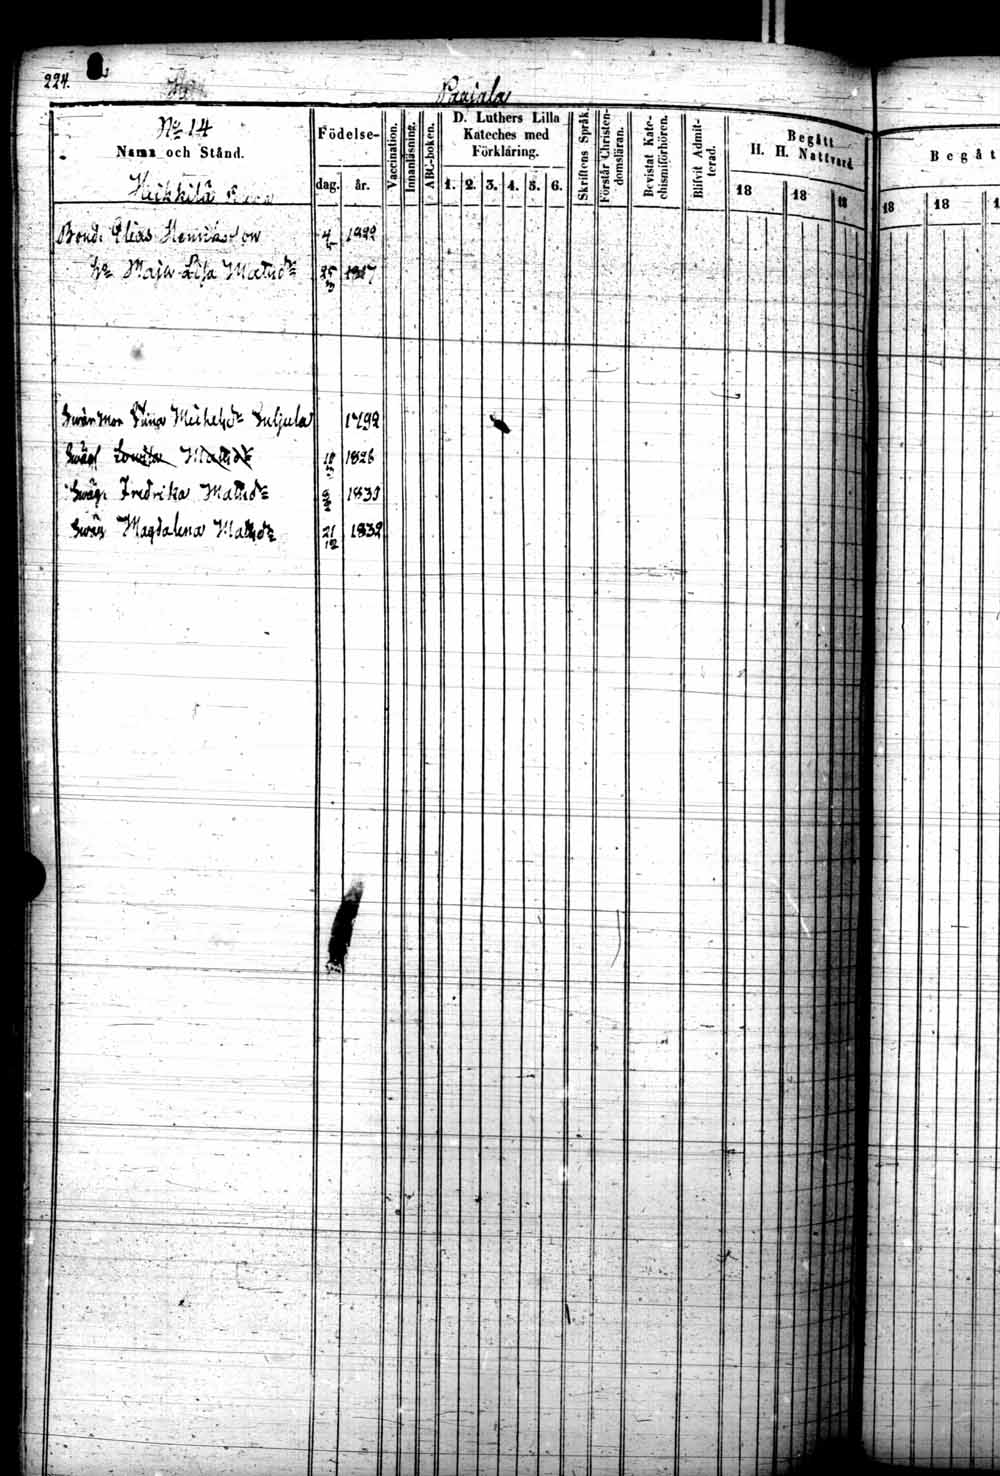 224.
Pajala
No 14
Namn och Stånd.
Födelse-
dag. år.
Vaccination.
Innanläsning.
ABC-boken.
D. Luthers Lilla
Kateches med
Förklaring.
1. 2. 3. 4. 5. 6.
Skriftens Språk
Förstår Christen-
domsläran.
Bevistat Kate-
chismiförhören.
Blifvit Admit-
terad.
Begått
H. H. Nattvard
18 18 18
Begåt
18 18 1
Heikkilä
Bond. Elias Henriksson 1822
hu Maja Lisa Matsdr 25/3 1817
Svärmor Stina Michelsdr 1792
Lovisa Matsdr 1826
Sväg. Fredrika Matsdr
Magdalena Matsdr 21/12 1832